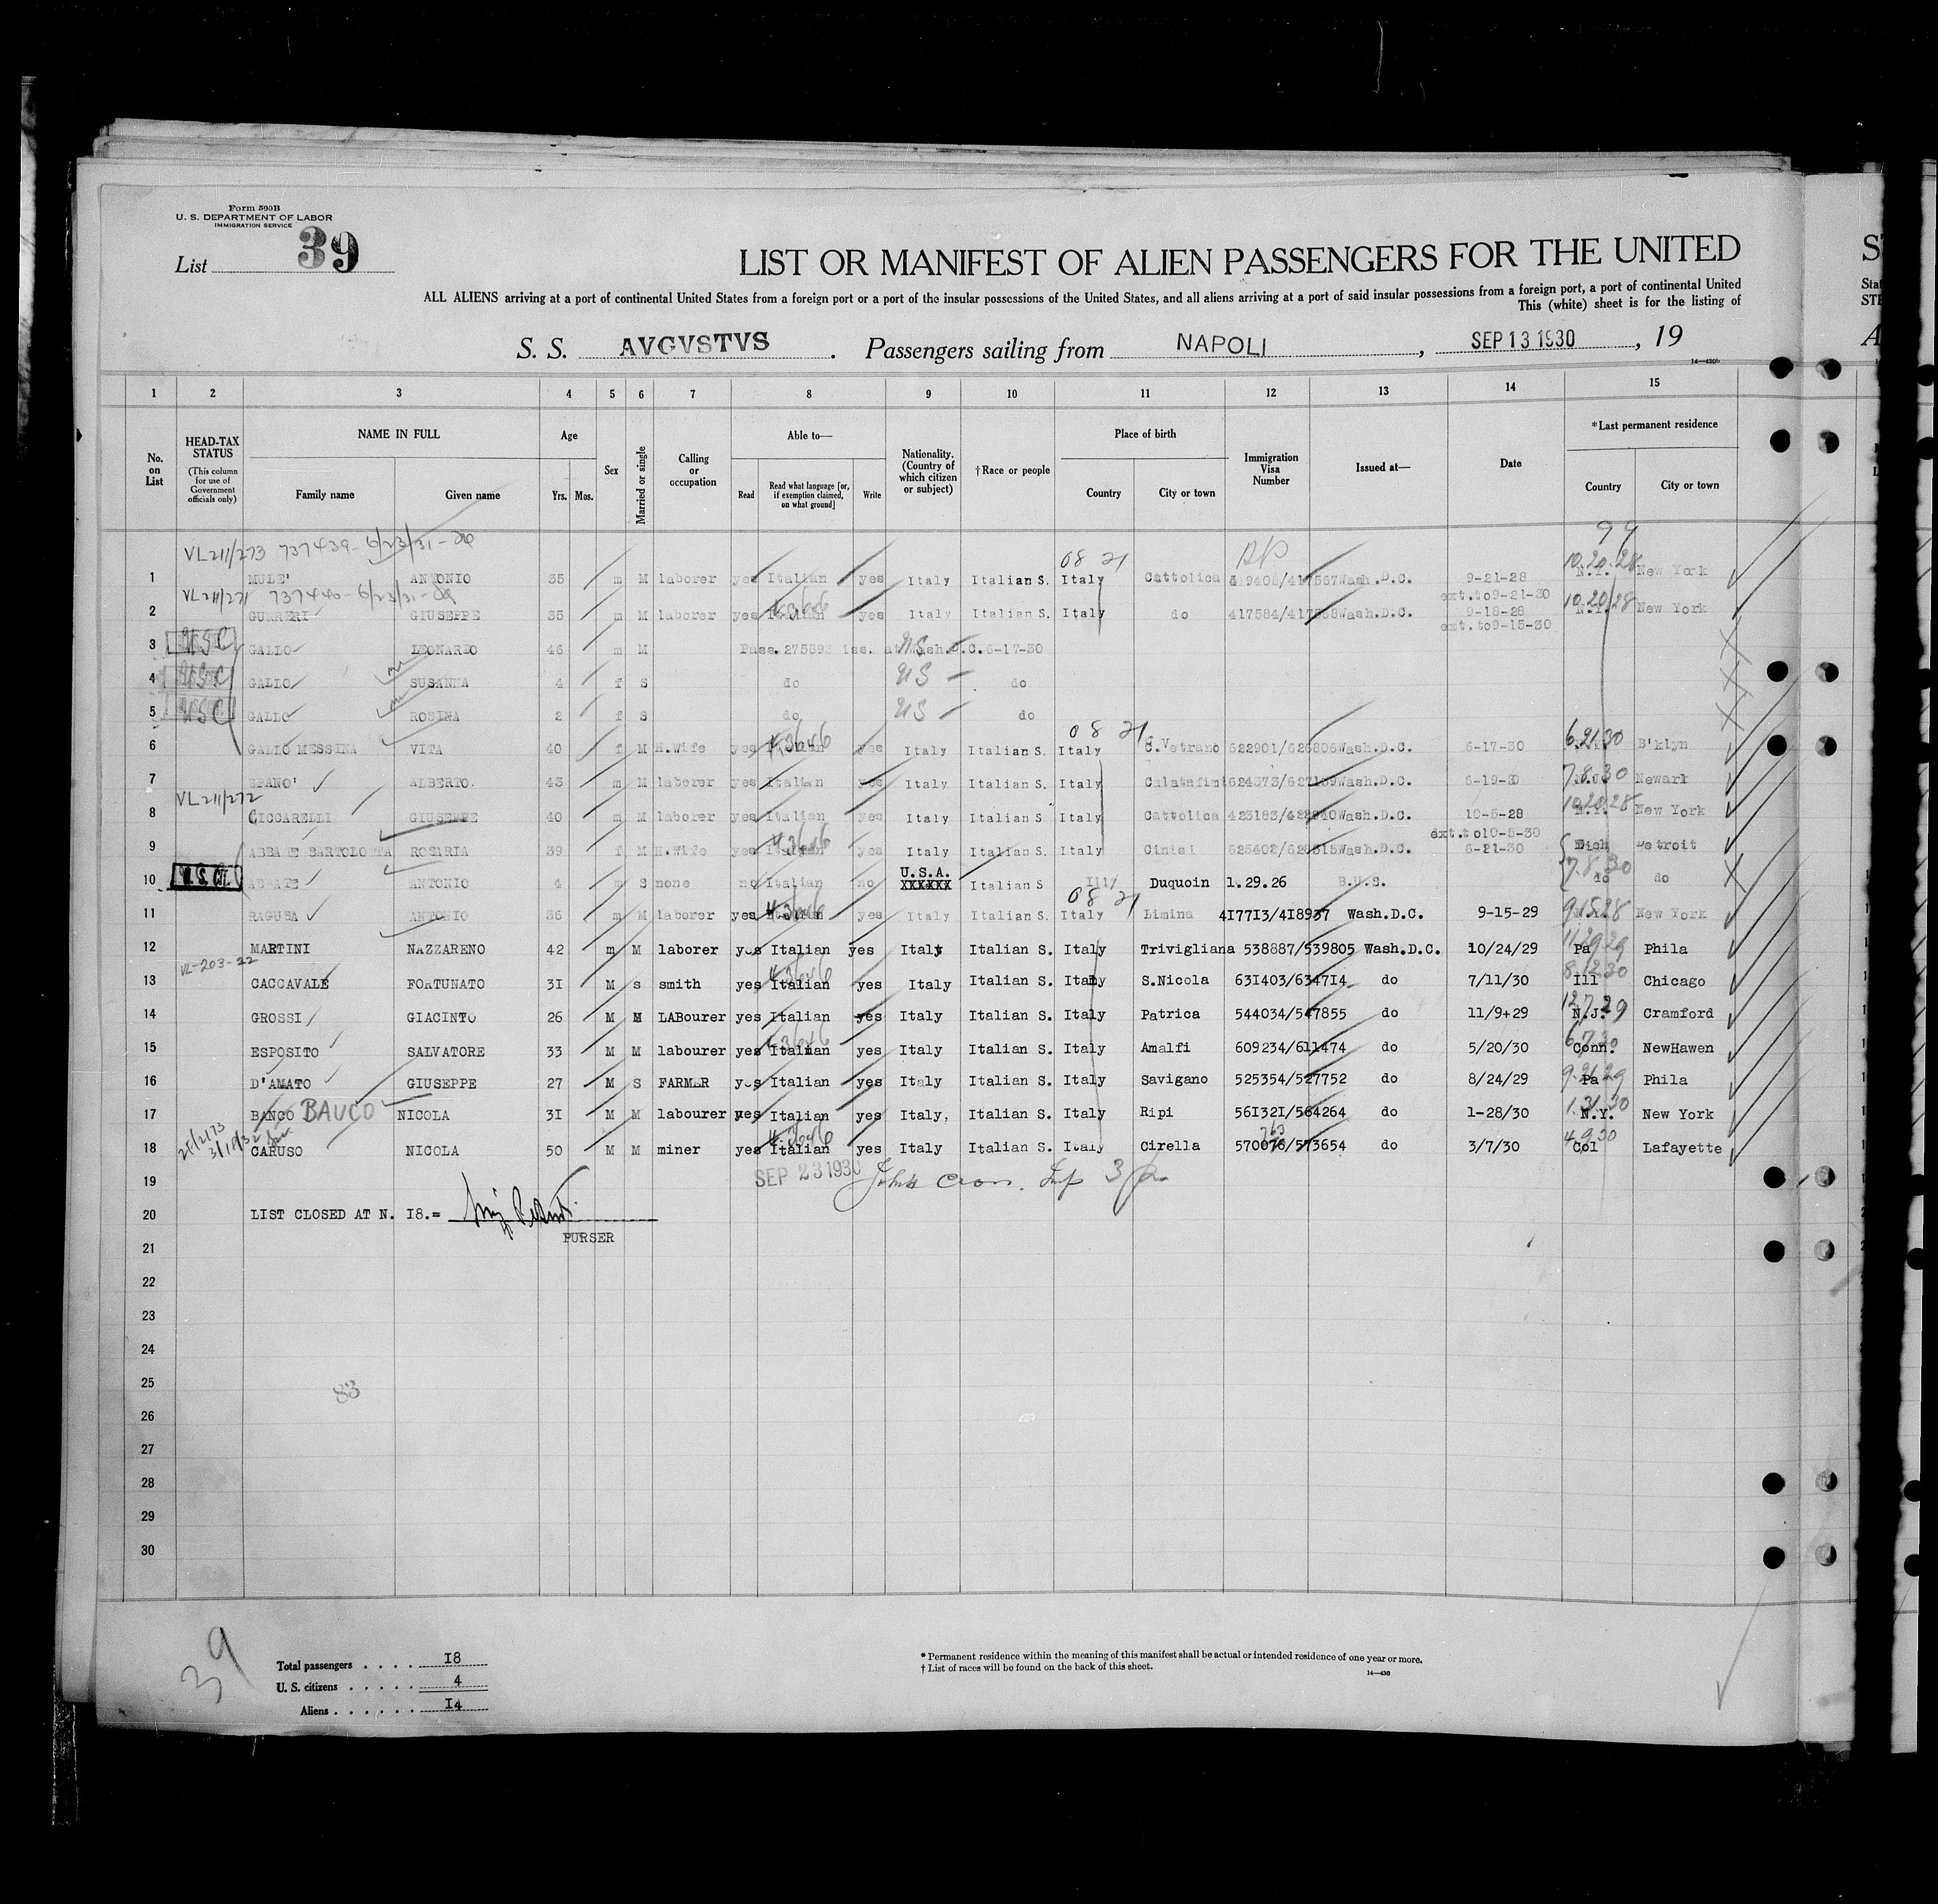 Form 500B
U. S. DEPARTMENT OF LABOR
IMMIGRATION SERVICE
List 39
LIST OR MANIFEST OF ALIEN PASSENGERS FOR THE UNITED
ALL ALIENS arriving at a port of continental United States from a foreign port or a port of the insular possessions of the United States, and all aliens arriving at a port of said insular possessions from a foreign port, a port of continental United
This (white) sheet is for the listing of
S. S. AVGVSTVS . Passengers sailing from NAPOLI , SEP 13 1930 , 19
1 2 3 4 5 6 7 8 9 10 11 12 13 14 15
No. on List
HEAD-TAX STATUS (This column for use of Government officials only)
NAME IN FULL Family name Given name
Age Yrs. Mos.
Sex
Married or single
Calling or occupation
Able to— Read Read what language [or, if exemption claimed, on what ground] Write
Nationality. (Country of which citizen or subject)
†Race or people
Place of birth Country City or town
Immigration Visa Number
Issued at—
Date
*Last permanent residence Country City or town
99
VL211/273 737439-6/23/31- 08 21 10.20.28
1 MULE' ANTONIO 35 m M laborer yes Italian yes Italy Italian S. Italy Cattolica Wash.D.C. 9-21-28 N.Y. New York
VL211/271 737440-6/23/31- ext.to9-21-30 10/20/28
2 GURRERI GIUSEPPE 35 m M laborer yes Italian yes Italy Italian S. Italy do Wash.D.C. 9-18-28 New York
ext.to9-15-30
3 USC GALLO LEONARDO 46 m M Pass. 275893 iss. at Wash.D.C.6-17-30 US
4 USC GALLO SUSANNA 4 f S do US - do
5 USC GALLO ROSINA 2 f S do US - do
08 21 6.21.30
6 GALLO MESSINA VITA 40 f M H.Wife yes Italian yes Italy Italian S. Italy C.Vetrano 622901/626806Wash.D.C. 6-17-30 B'klyn
7 SPANO' ALBERTO. 43 m M laborer yes Italian yes Italy Italian S. Italy Calatafimi Wash.D.C. 6-19-30 7.8.30 Newark
VL211/272
8 CICCARELLI GIUSEPPE 40 m M laborer yes Italian yes Italy Italian S. Italy Cattolica Wash.D.C. 10-5-28 10.20.28 New York
ext.to10-5-30
9 ABBATE BARTOLOTTA ROSARIA 39 f M H.Wife yes Italian yes Italy Italian S. Italy Cinisi Wash.D.C. 6-21-30 Mich Detroit
7.8.30
10 U.S.Cit. ABBATE ANTONIO 4 m S none no Italian no U.S.A. XXXXXX Italian S Ill/ Duquoin 1.29.26 B.U.S. do do
08 21
11 RAGUSA ANTONIO 36 m M laborer yes Italian yes Italy Italian S. Italy Limina 4I77I3/4I8937 Wash.D.C. 9-15-29 9.15.28 New York
12 MARTINI NAZZARENO 42 m M laborer yes Italian yes Italy Italian S. Italy Trivigliana 538887/539805 Wash.D.C. 10/24/29 11/29/29 Pa Phila
VL-203-22
13 CACCAVALE FORTUNATO 3I M s smith yes Italian yes Italy Italian S. Italy S.Nicola 63I403/634714 do 7/11/30 8.12.30 Ill Chicago
14 GROSSI GIACINTO 26 M M LABourer yes Italian yes Italy Italian S. Italy Patrica 544034/547855 do 11/9+29 12.7.29 N.J. Cramford
15 ESPOSITO SALVATORE 33 M M labourer yes Italian yes Italy Italian S. Italy Amalfi 609234/611474 do 5/20/30 Conn. NewHawen
16 D'AMATO GIUSEPPE 27 M S FARMER yes Italian yes Italy Italian S. Italy Savigano 525354/527752 do 8/24/29 9.21.29 Pa Phila
17 BANCO BAUCO NICOLA 3I M M labourer yes Italian yes Italy, Italian S. Italy Ripi 56I32I/564264 do 1-28/30 1.31.30 N.Y. New York
18 CARUSO NICOLA 50 M M miner yes Italian yes Italy Italian S. Italy Cirella 570076/573654 763 do 3/7/30 4.9.30 Col Lafayette
19 SEP 23 1930
20 LIST CLOSED AT N. I8.=
PURSER
21
22
23
24
25
83
26
27
28
29
30
39
Total passengers . . . . I8
U. S. citizens . . . . . 4
Aliens . . . . . . I4
* Permanent residence within the meaning of this manifest shall be actual or intended residence of one year or more.
† List of races will be found on the back of this sheet.
14—430